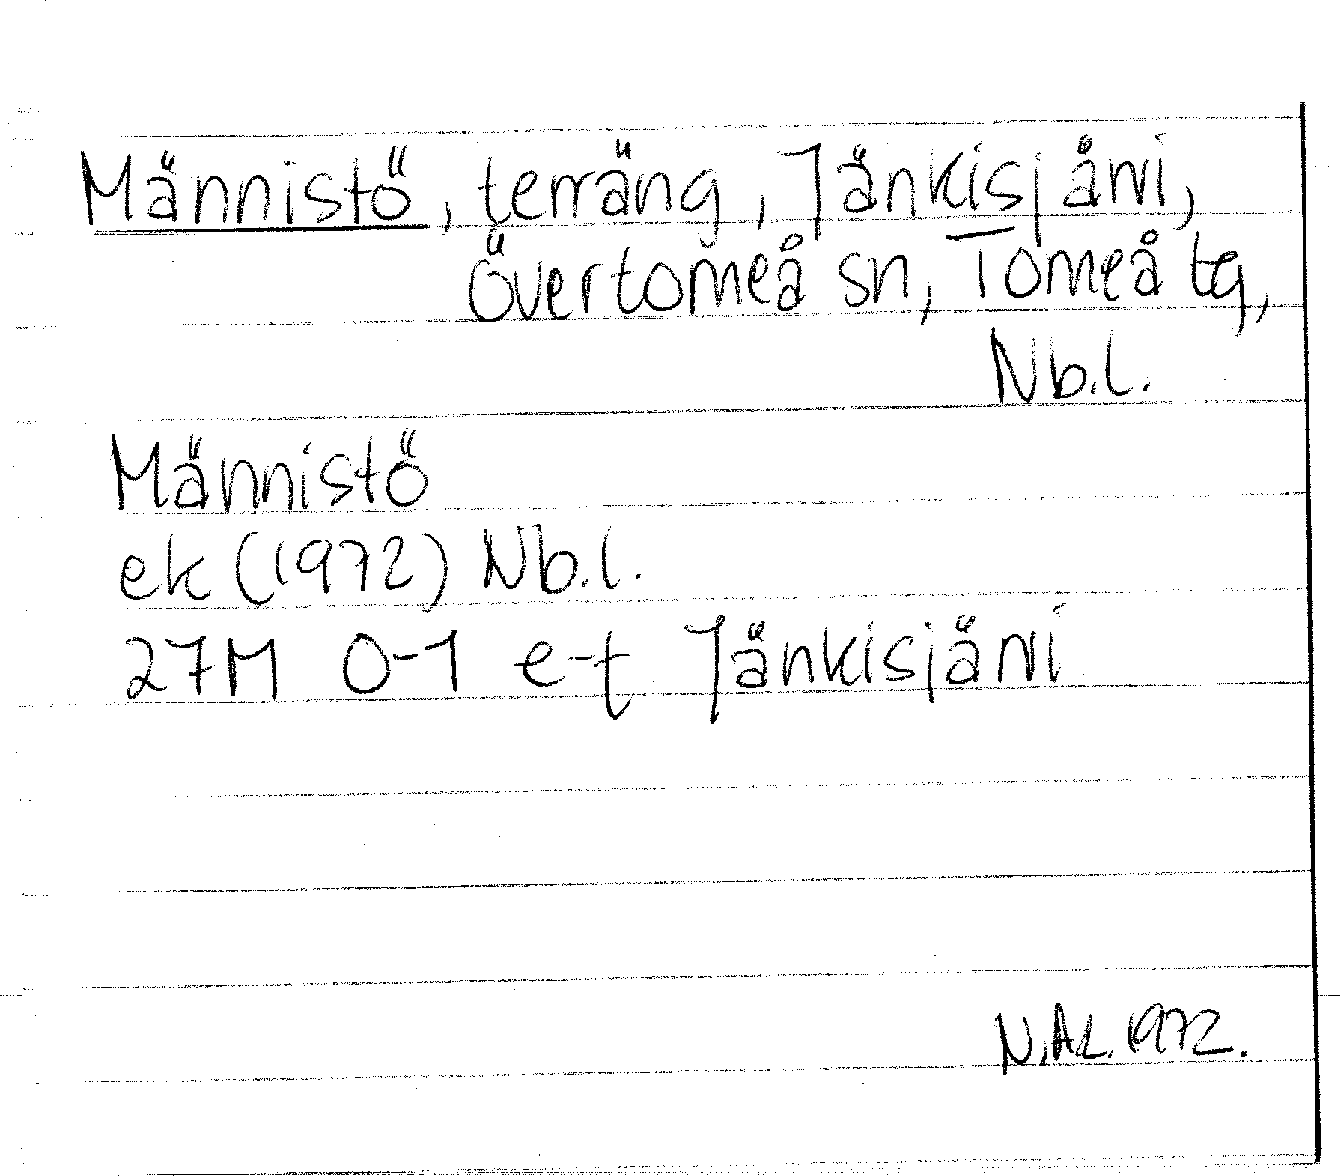 Männistö, terräng, Jänkisjärvi,
Övertorneå sn, Torneå tg,
Nb.l.
Männistö
ek (1972) Nb.l.
27M 0-1 e-f Jänkisjärvi
N.Ak. 1972.